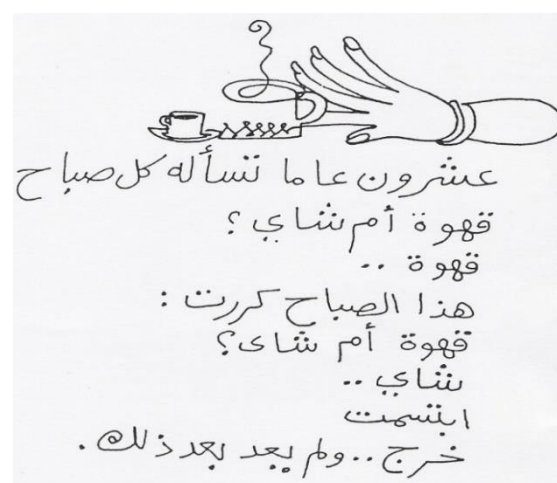 عشرون عاما تسأله كل صباح
قهوة أم شاي ؟
قهوة ..
هذا الصباح كررت :
قهوة أم شاى؟
شاي ..
ابتسمت
خرج .. ولم يعد بعد ذلك .